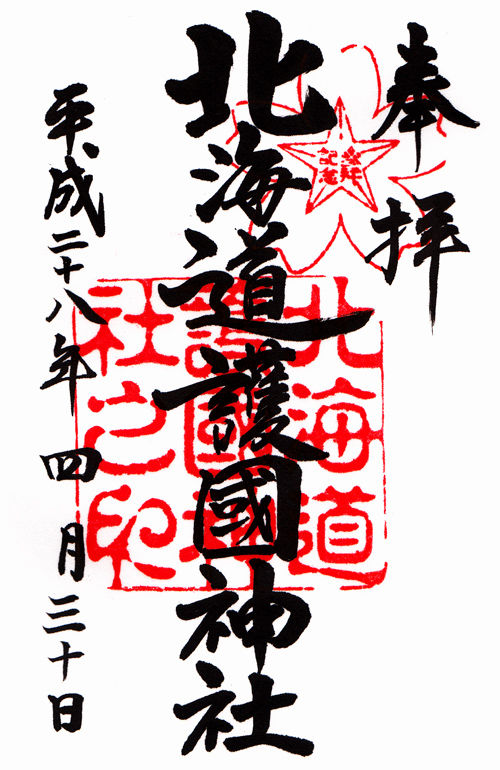 奉拝
北海道護國神社
平成二十八年四月三十日
北海道
護國神
社之印